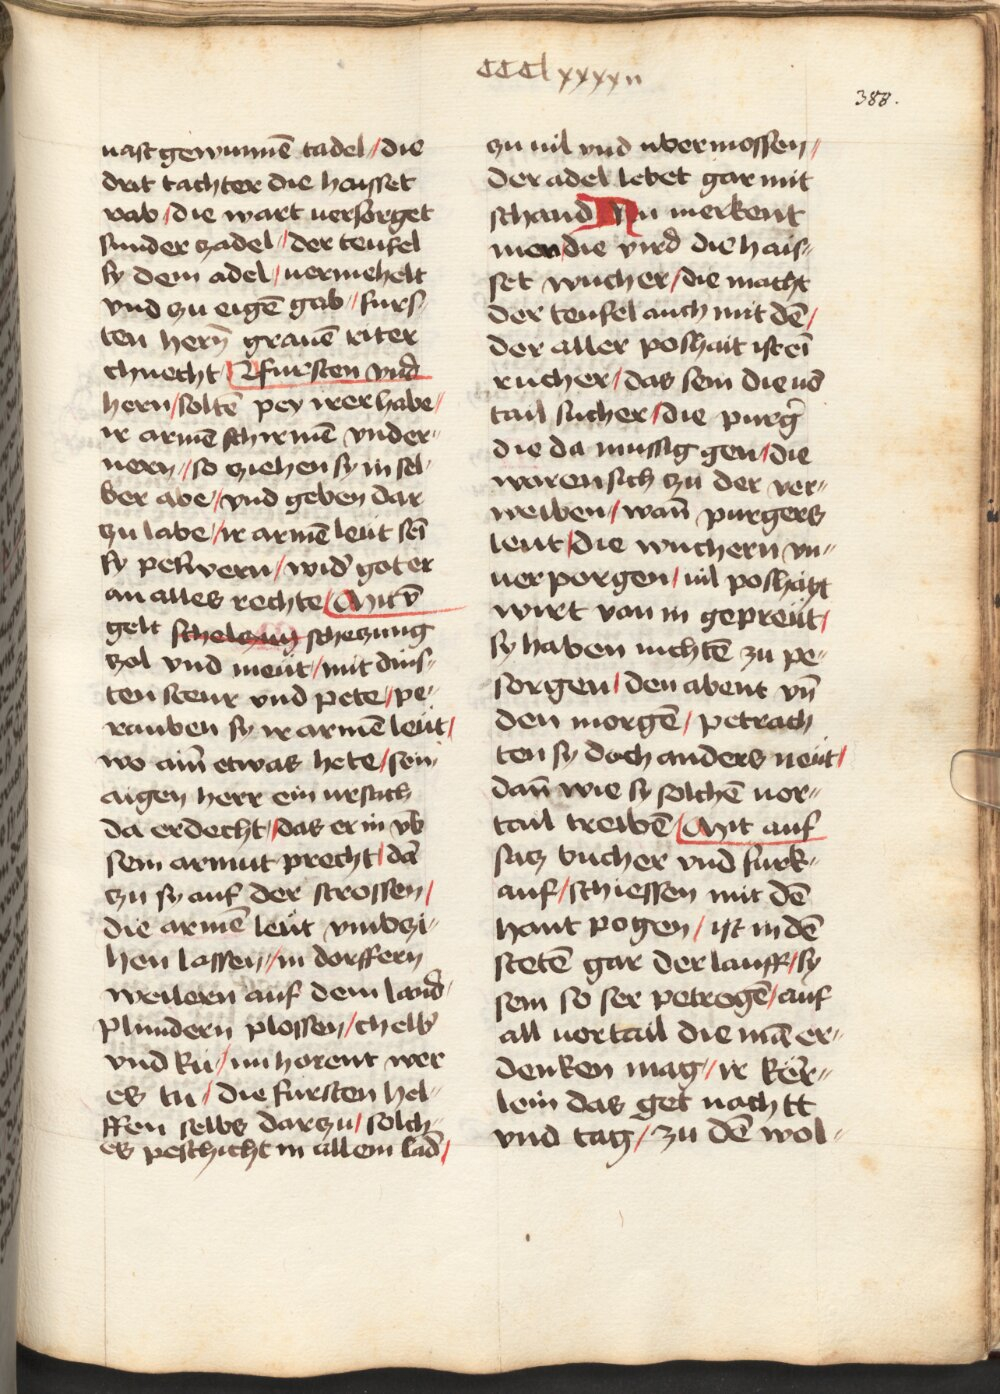 CCClxxxxii
388.
uast gewunnē tadel / die
drit tachter die haisset
rab / die wart uersorget
sunder zadel / der teufel
sy dem adel / uermehelt
vnd zu eigē gab / furs-
ten hern̄ grauē riter
chnecht / fursten vnd
hern / soltē pey irer habe /
ir armē schirmē vnder-
nern / so ziehen sy in sel-
ber abe / vnd geben dar
zu labe / ir armē leut sei
sy peswern / wid got er
an alles rechte / Mit v̄
gelt schelzung schezung
zol vnd meut / mit dins-
ten steur vnd pete / pe-
rauben sy ir armē leut /
wo ain̄ etwas hete / sein
aigen herr ein ursach
da erdecht / das er in vb
sein armut precht / dā
zu sy auf der strossen /
die armē leut vmbzi-
hen lassen / in dorffern
weilern auf dem land
plundern plossen / chelb
vnd ku / nu horent wer
es tu / die fursten hel-
ffen selbs darzu / solch-
es peschicht in allem lād /
zu uil vnd ubermossen /
der adel lebet gar mit
schand Nu merkent
mer die vird die hais-
set wucher / die macht
der teufel auch mit dē /
der aller poshait ist eī
rucher / das sein die uō
tail sucher / die purg̉
die da mussig gen / die
waren sich zu der ver-
weiben / wan̄ purgers
leut / die wuchern vn-
uerporgen / uil poshait
wirt van in gepreut /
sy haben nichtē zu pe-
sorgen / den abent vn̄
den morgē / petrach
ten sy doch anders neut /
dan̄ wie sy solchē uor-
tail treibē / Mit auf
saz bucher vnd furk-
auf / schiessen mit dē
hant pogen / ist in dē
stetē gar der lauff / sy
sein so ser petrogē / auf
all uortail die mā er-
denken mag / ir kēr-
lein das get nachtt
vnd tag / zu dē wol-